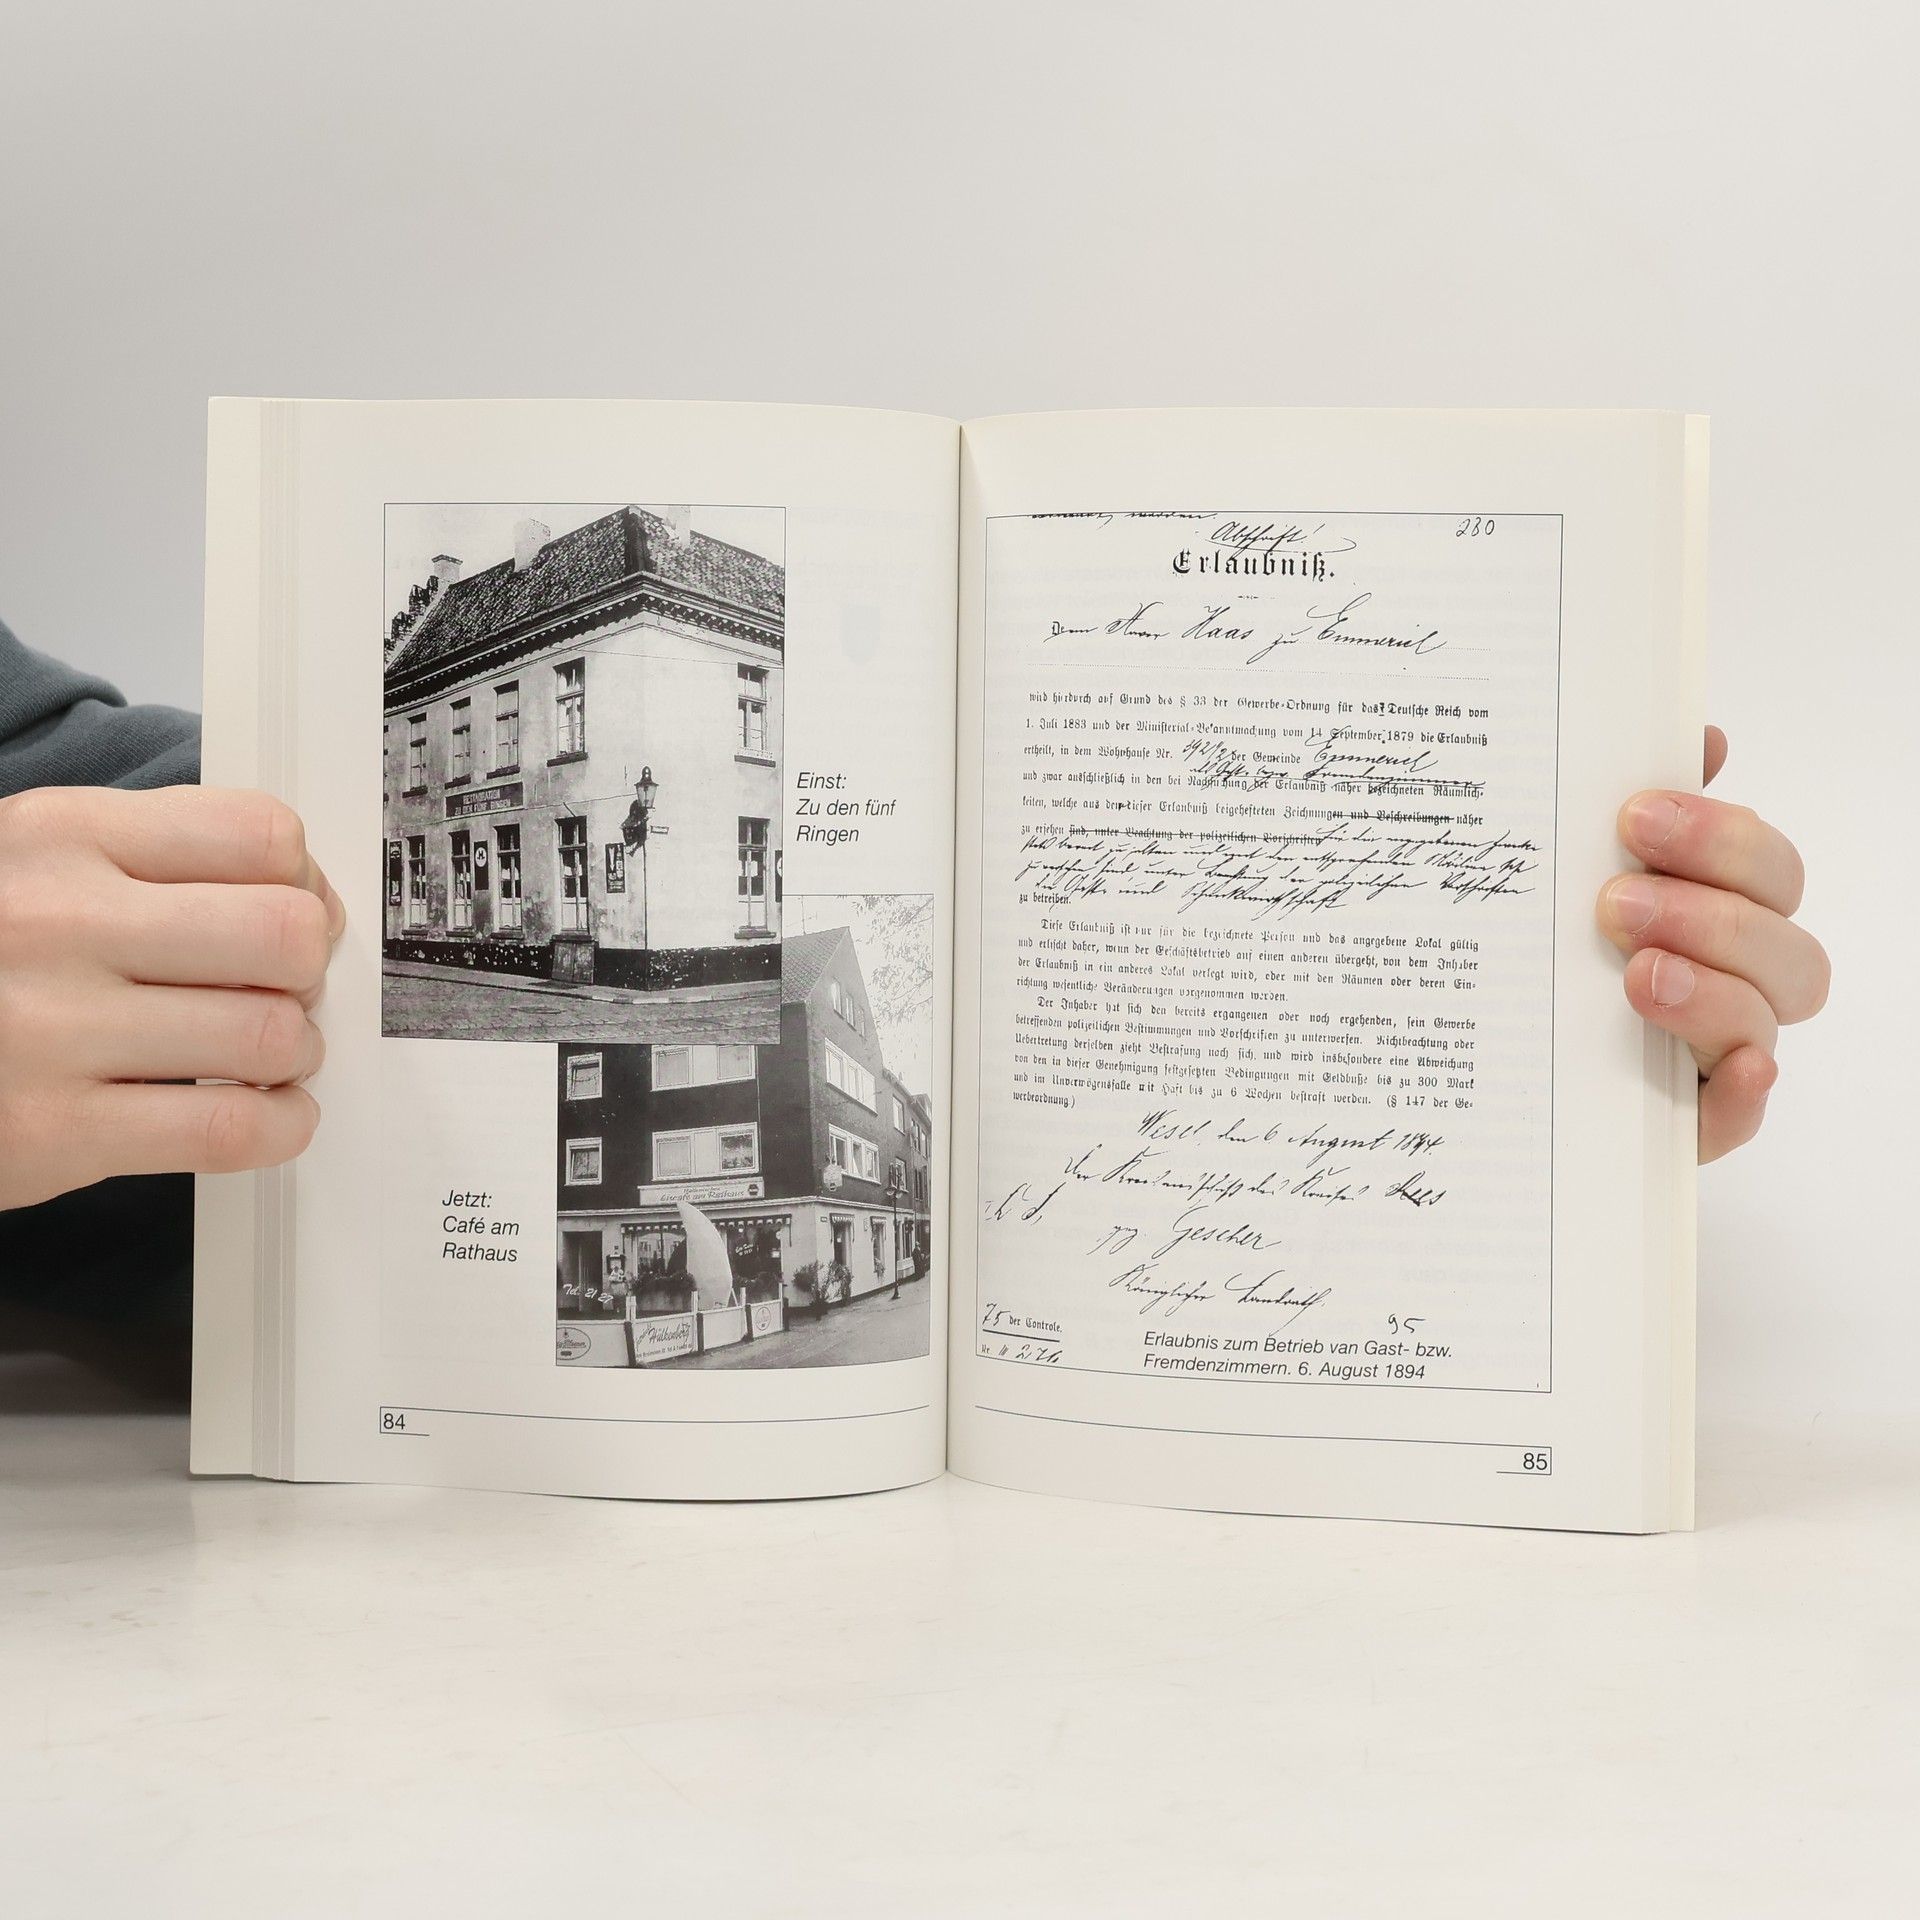 RESTAURATION
ZU DEN FÜNF RINGEN
Einst:
Zu den fünf
Ringen
Jetzt:
Café am
Rathaus
Eiscafé am Rathaus
Tel. 21 27
Hülkenberg
84
230
Abschrift!
Erlaubniß.
Dem Haas zu Emmerich
wird hierdurch auf Grund des § 33 der Gewerbe-Ordnung für das Deutsche Reich vom
1. Juli 1883 und der Ministerial-Bekanntmachung vom 14 September 1879 die Erlaubniß
ertheilt, in dem Wohnhause Nr. der Gemeinde Emmerich
als Gast- bzw. Fremdenzimmer
und zwar ausschließlich in den bei Nachsuchung der Erlaubniß näher bezeichneten Räumlich-
keiten, welche aus den dieser Erlaubniß beigehefteten Zeichnungen und Beschreibungen näher
zu ersehen sind, unter Beachtung der polizeilichen Vorschriften für die angegebenen Zwecke
stets bereit zu halten und mit den entsprechenden
zu versehen sind unter Beachtung der polizeilichen Vorschriften
die Gast- und Schankwirthschaft
zu betreiben.
Diese Erlaubniß ist nur für die bezeichnete Person und das angegebene Lokal gültig
und erlischt daher, wenn der Geschäftsbetrieb auf einen anderen übergeht, von dem Inhaber
der Erlaubniß in ein anderes Lokal verlegt wird, oder mit den Räumen oder deren Ein-
richtung wesentliche Veränderungen vorgenommen werden.
Der Inhaber hat sich den bereits ergangenen oder noch ergehenden, sein Gewerbe
betreffenden polizeilichen Bestimmungen und Vorschriften zu unterwerfen. Nichtbeachtung oder
Uebertretung derselben zieht Bestrafung nach sich, und wird insbesondere eine Abweichung
von den in dieser Genehmigung festgesetzten Bedingungen mit Geldbuße bis zu 300 Mark
und im Unvermögensfalle mit Haft bis zu 6 Wochen bestraft werden. (§ 147 der Ge-
werbeordnung)
Wesel, den 6 August 1894.
Der Kreisausschuß des Kreises Rees
L. S.
gez. Gescher
Königlicher Landrath.
75 der Controle.
95
Erlaubnis zum Betrieb van Gast- bzw.
Fremdenzimmern. 6. August 1894
85